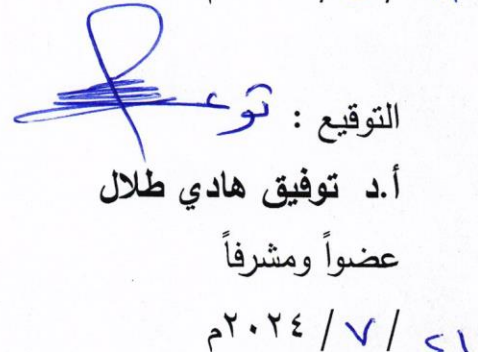 التوقيع :
أ.د توفيق هادي طلال
عضواً ومشرفاً
٢١ / ٧ / ٢٠٢٤م